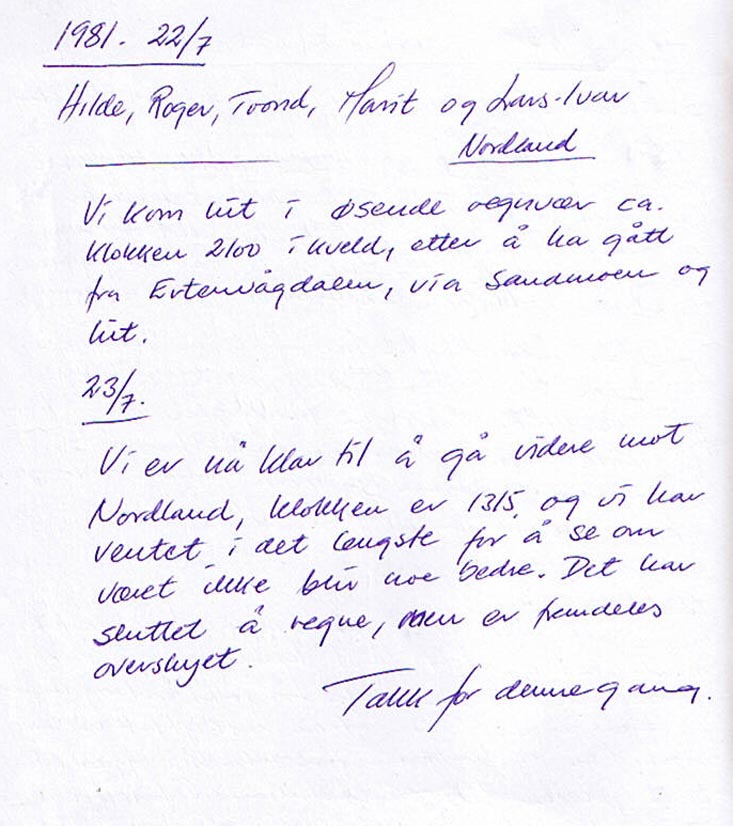 1981. 22/7
Hilde, Roger, Trond, Marit og Lars-Ivar
Nordland
Vi kom hit i øsende regnvær ca.
klokken 2100 i kveld, etter å ha gått
fra Evtenvågdalen, via Sandmoen og
hit.
23/7.
Vi er nå klar til å gå videre mot
Nordland, klokken er 1315, og vi har
ventet i det lengste for å se om
været ikke blir noe bedre. Det har
sluttet å regne, men er fremdeles
overskyet.
Takk for denne gang.